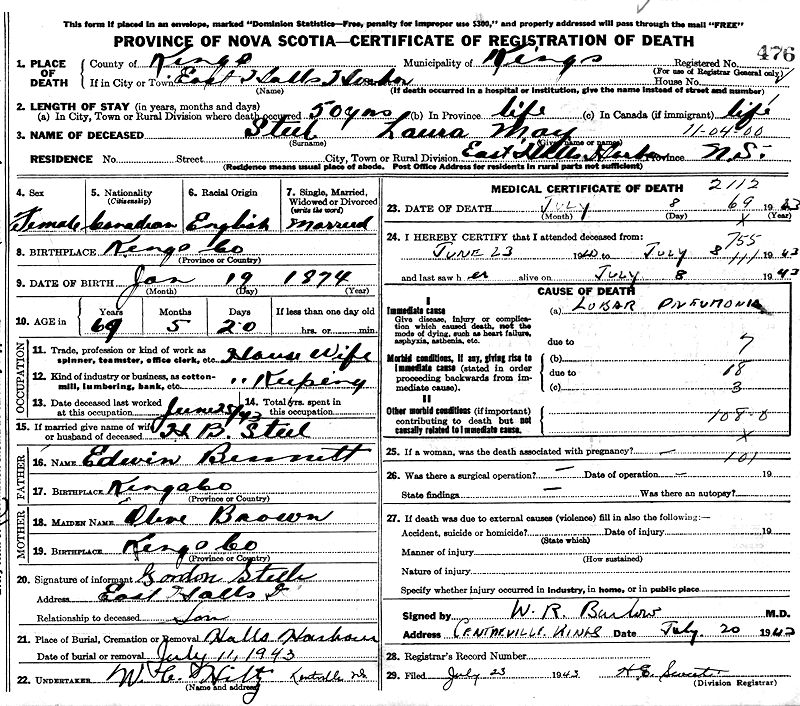 This form if placed in an envelope, marked "Dominion Statistics—Free, penalty for improper use $300," and properly addressed will pass through the mail "FREE"
PROVINCE OF NOVA SCOTIA—CERTIFICATE OF REGISTRATION OF DEATH
476
1. PLACE OF DEATH County of Kings Municipality of Kings Registered No.
(For use of Registrar General only)
If in City or Town East Halls Harbor House No.
(Name) (If death occurred in a hospital or institution, give the name instead of street and number)
2. LENGTH OF STAY (in years, months and days)
(a) In City, Town or Rural Division where death occurred 50 yrs (b) In Province life (c) In Canada (if immigrant) life
3. NAME OF DECEASED Steel Laura May 11-04-00
(Surname) (Given name or names)
RESIDENCE No. Street City, Town or Rural Division East Halls Harbor Province N.S.
(Residence means usual place of abode. Post Office Address for residents in rural parts not sufficient)
4. Sex Female
5. Nationality (Citizenship) Canadian
6. Racial Origin English
7. Single, Married, Widowed or Divorced (write the word) Married
8. BIRTHPLACE Kings Co
(Province or Country)
9. DATE OF BIRTH Jan 19 1874
(Month) (Day) (Year)
10. AGE in Years 69 Months 5 Days 20 If less than one day old hrs. or min.
OCCUPATION
11. Trade, profession or kind of work as spinner, teamster, office clerk, etc. House Wife
12. Kind of industry or business, as cotton-mill, lumbering, bank, etc. " Keeping
13. Date deceased last worked at this occupation June 25/43 14. Total yrs. spent in this occupation
15. If married give name of wife or husband of deceased H B. Steel
FATHER
16. NAME Edwin Bennett
17. BIRTHPLACE Kings Co
(Province or Country)
MOTHER
18. MAIDEN NAME Olive Brown
19. BIRTHPLACE Kings Co
(Province or Country)
20. Signature of informant Gordon Steele
Address East Halls H
Relationship to deceased Son
21. Place of Burial, Cremation or Removal Halls Harbour
Date of burial or removal July 11, 1943
22. UNDERTAKER W. C. Hiltz Kentville NS
(Name and address)
MEDICAL CERTIFICATE OF DEATH 2112
23. DATE OF DEATH July 8 69 1943
(Month) (Day) X (Year)
24. I HEREBY CERTIFY that I attended deceased from: 755
June 23 1943 to July 8 111 1943
and last saw her alive on July 8 1943
CAUSE OF DEATH
I
Immediate cause
Give disease, injury or complication which caused death, not the mode of dying, such as heart failure, asphyxia, asthenia, etc.
(a) Lobar Pneumonia
due to 7
Morbid conditions, if any, giving rise to immediate cause (stated in order proceeding backwards from immediate cause).
(b)
due to 18
(c) 3
II
Other morbid conditions (if important) contributing to death but not causally related to immediate cause.
108-0
X
25. If a woman, was the death associated with pregnancy? —
101
26. Was there a surgical operation? — Date of operation — 19
State findings — Was there an autopsy?
27. If death was due to external causes (violence) fill in also the following:—
Accident, suicide or homicide? Date of injury 19
(State which)
Manner of injury
(How sustained)
Nature of injury
Specify whether injury occurred in industry, in home, or in public place
Signed by W. R. Barlow M.D.
Address Centreville Kings Date July 20 1943
28. Registrar's Record Number
29. Filed July 23 1943
(Division Registrar)